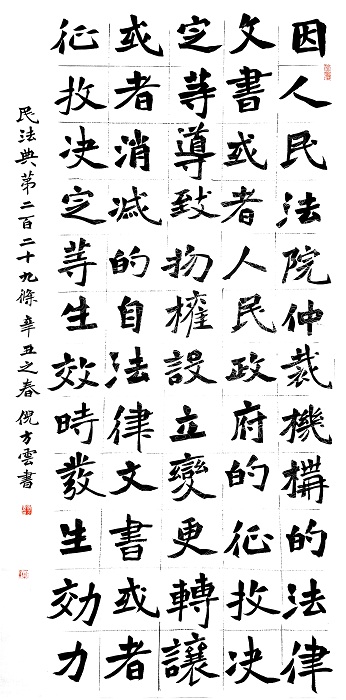 因人民法院仲裁機構的法律
文書或者人民政府的征收决
定等導致物權設立變更轉讓
或者消滅的自法律文書或者
征收决定等生效時發生効力
民法典第二百二十九條 辛丑之春 倪方雲書